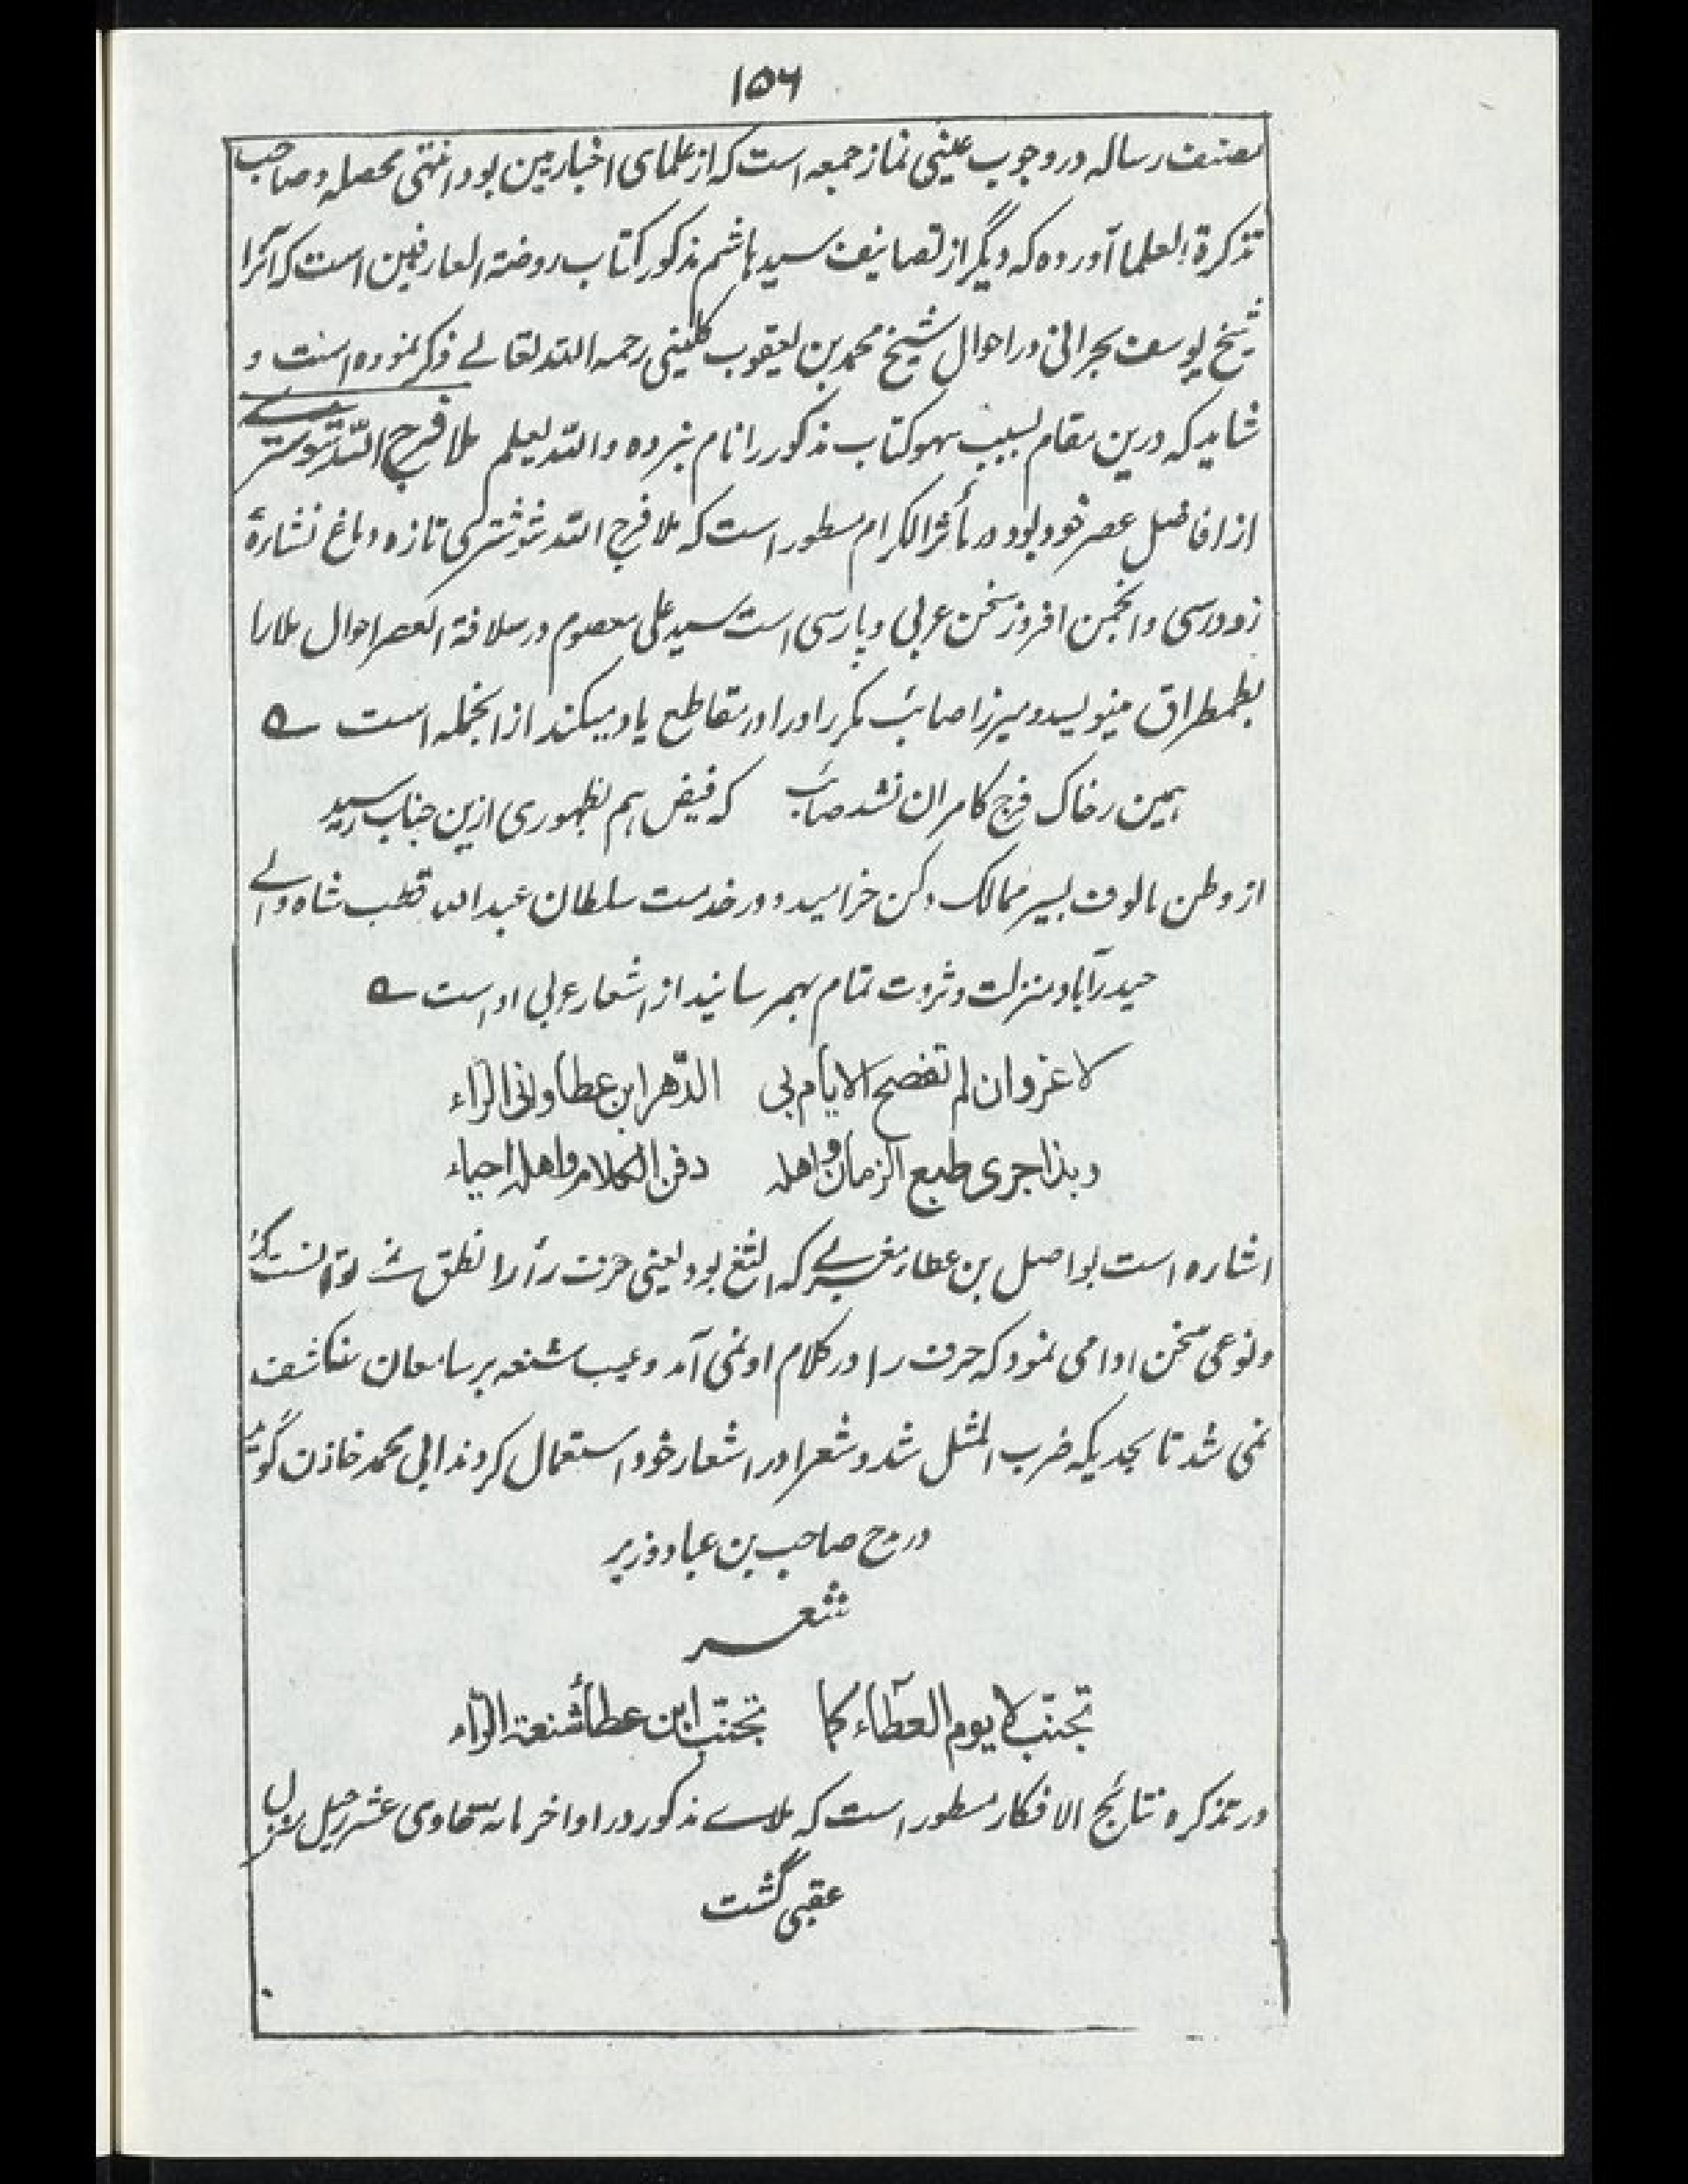 ۱۵۶
مصنف رساله در وجوب عینی نماز جمعه است که از علمای اخباریین بود انتهی محصله و صاحب
تذکرة العلما آورده که دیگر از تصانیف سید هاشم مذکور کتاب روضة العارفین است که آنرا
شیخ یوسف بحرانی در احوال شیخ محمد بن یعقوب کلینی رحمه الله تعالے ذکر نموده است و
شاید که درین مقام بسبب سهو کتاب مذکور را نام نبرده والله یعلم ملا فرج الله شوسترے
از افاضل عصر خود بود در مآثر الکرام مسطور است که ملا فرج الله شوشتری تازه دماغ نشاءۀ
زودرسی و انجمن افروز سخن عربی و پارسی است سید علی معصوم در سلافة العصر احوال ملا را
بطمطراق مینویسد و میرزا صائب مکرر او را در مقاطع یاد میکند از انجمله است ؎
همین ز خاک فرج کامران نشد صائب که فیض هم بظهوری ازین جناب رسید
از وطن مالوف بسیر ممالک دکن خرامید و در خدمت سلطان عبدالله قطب شاه والے
حیدرآباد منزلت و ثروت تمام بهم رسانید از اشعار عربی اوست ؎
لا غرو ان لم تفصح الایام بی الدّهر ابن عطا وانی الرّاء
وبذا جری طبع الزمان واهله دفن الکلام واهله احیاء
اشاره است بواصل بن عطار مغربے که الثغ بود یعنی حرف رأ را نطق نمے توانست کرد
و نوعی سخن ادا می نمود که حرف را در کلام او نمی آمد و عیب شنعه بر سامعان منکشف
نمی شد تا بحدیکه ضرب المثل شد و شعرا در اشعار خود استعمال کردند ابی محمد خازن گوید
در مدح صاحب بن عباد وزیر
شعر
تجنّب لا یوم العطاء کما تجنّب ابن عطا شنعة الرّاء
در تذکره نتائج الافکار مسطور است که ملاے مذکور در اواخر مائة حادی عشر رحیل منزل
عقبی گشت